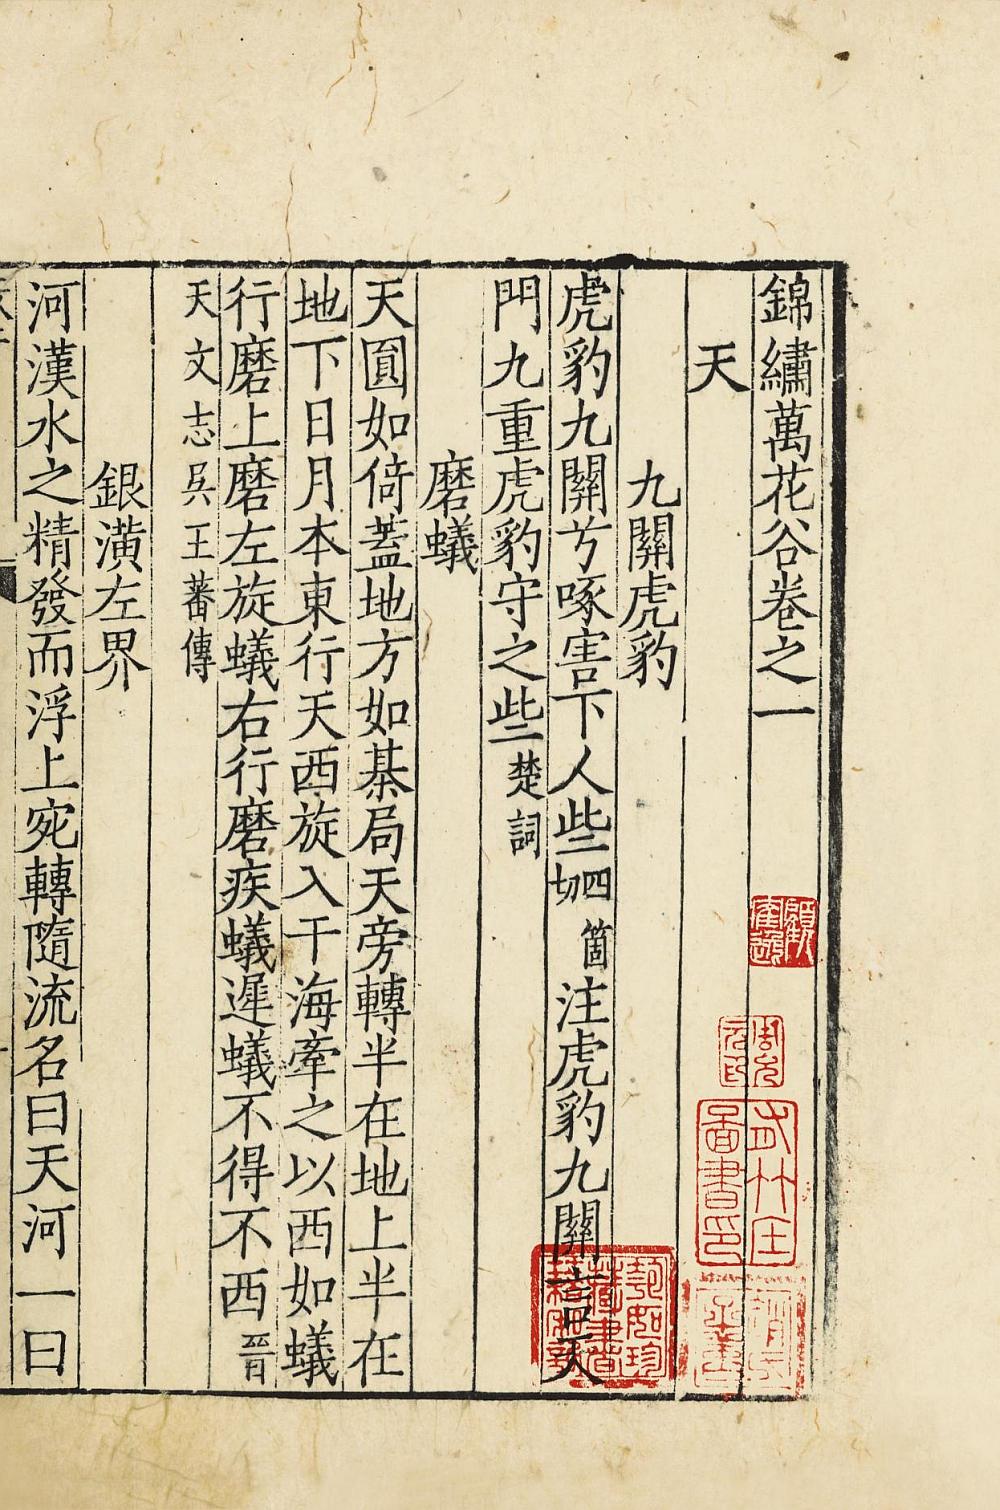 錦繡萬花谷卷之一
天
九關虎豹
虎豹九關兮啄害下人些四箇切注虎豹九關言天
門九重虎豹守之些楚詞
磨蟻
天圓如倚蓋地方如棊局天旁轉半在地上半在
地下日月本東行天西旋入于海牽之以西如蟻
行磨上磨左旋蟻右行磨疾蟻遲蟻不得不西晉
天文志吳王蕃傳
銀潢左界
河漢水之精發而浮上宛轉隨流名曰天河一曰